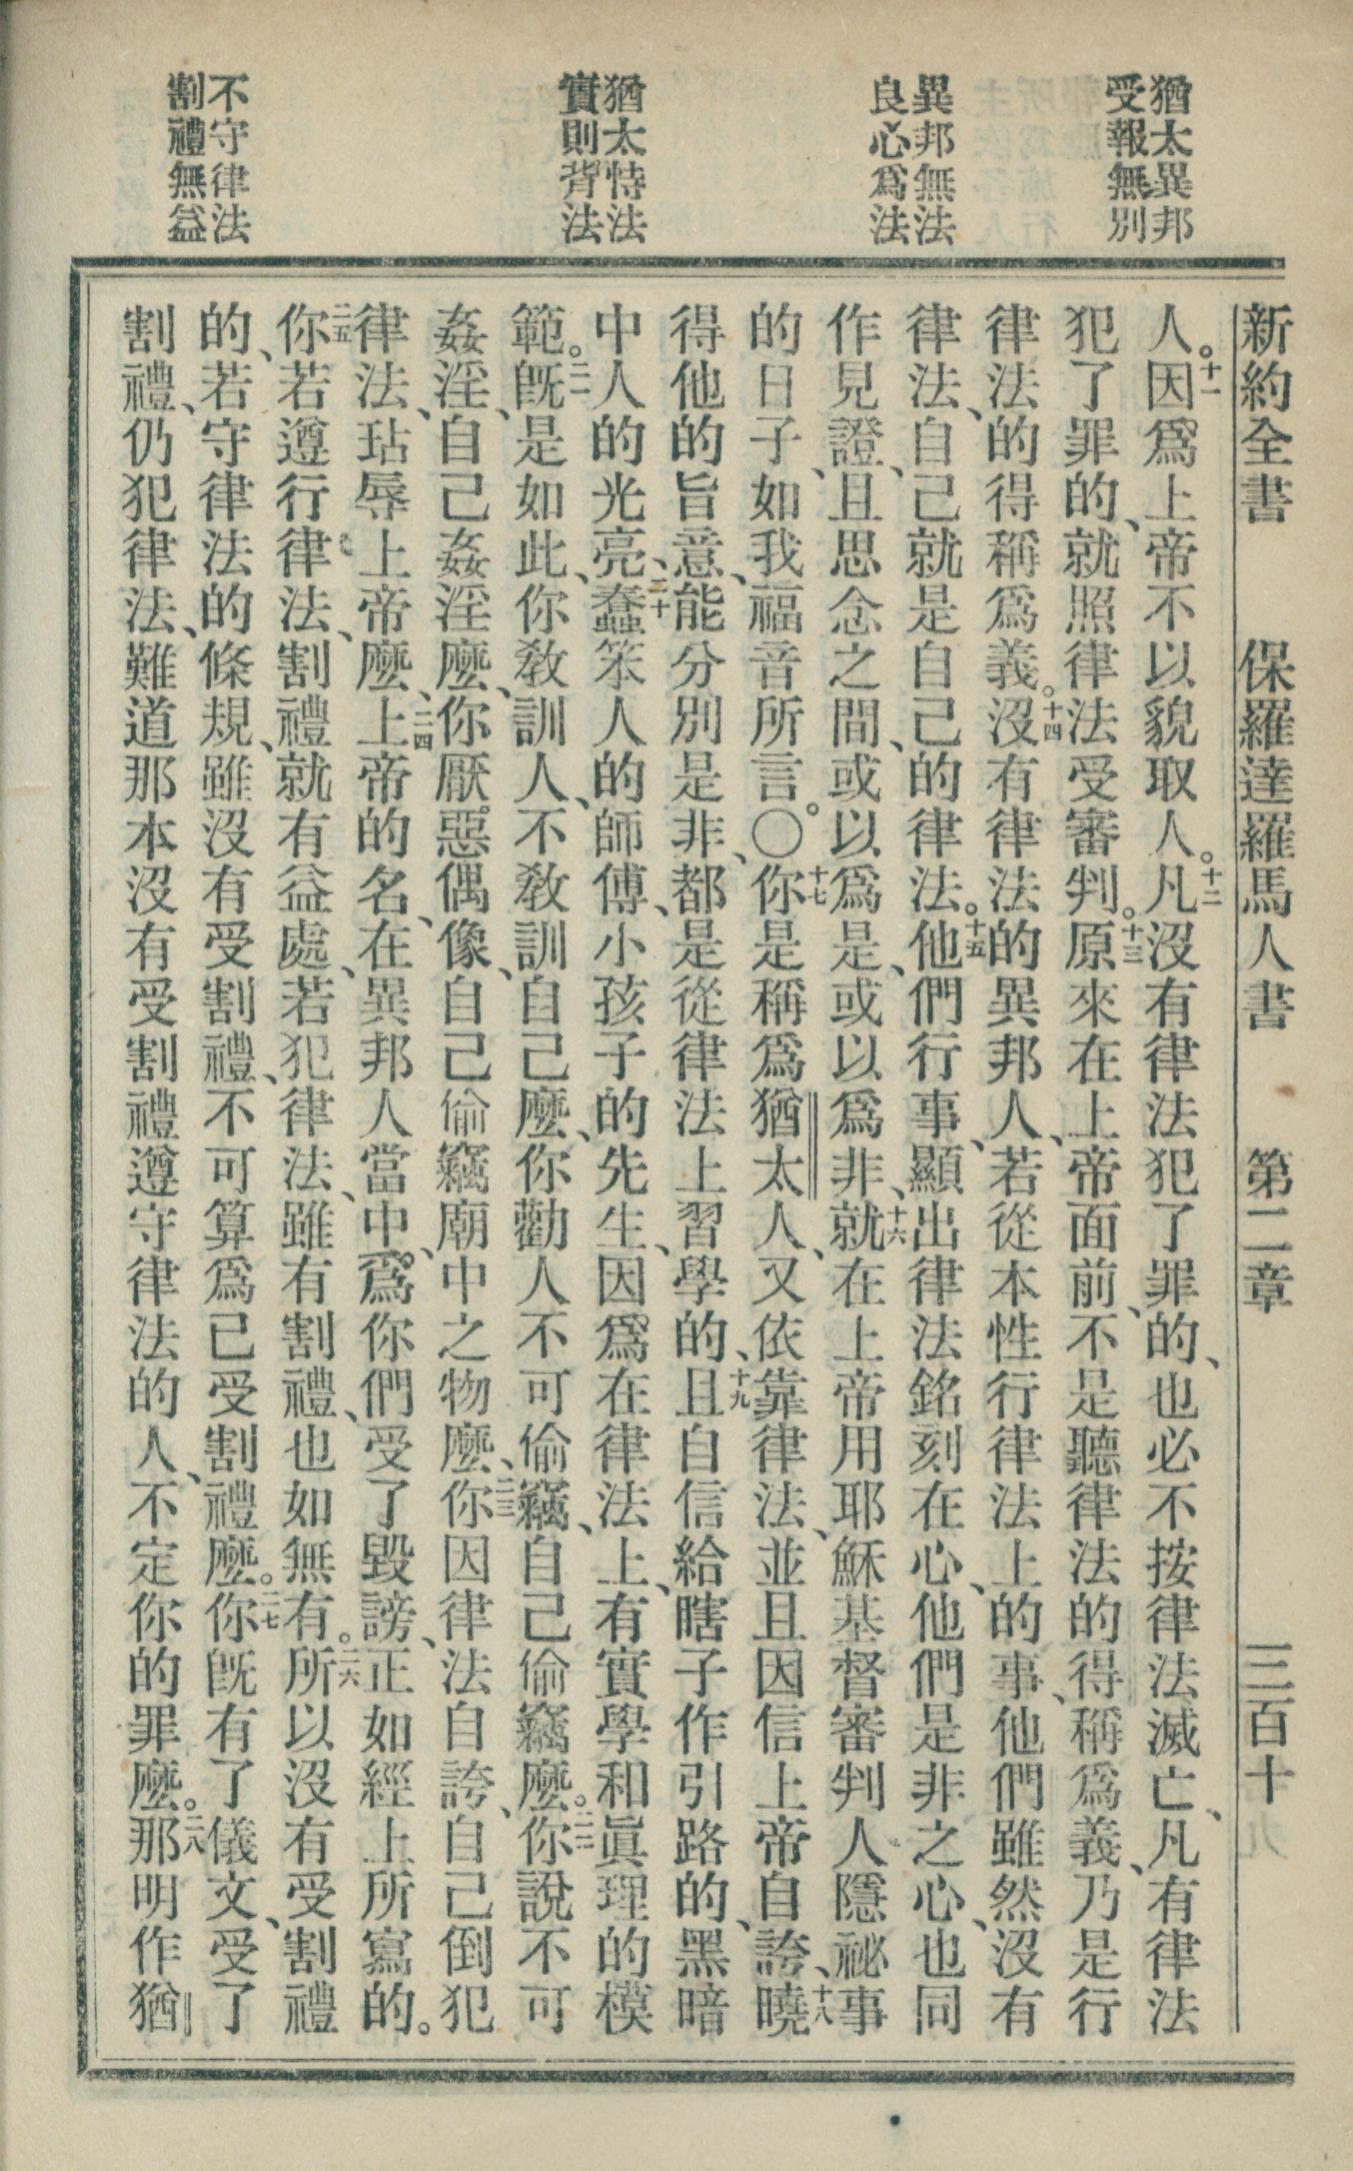 猶太異邦
受報無別
異邦無法
良心爲法
猶太恃法
實則背法
不守律法
割禮無益
新約全書 保羅達羅馬人書 第二章 三百十九
人。十一因爲上帝不以貌取人。十二凡沒有律法犯了罪的、也必不按律法滅亡、凡有律法
犯了罪的、就照律法受審判。十三原來在上帝面前、不是聽律法的得稱爲義、乃是行
律法的得稱爲義。十四沒有律法的異邦人、若從本性行律法上的事、他們雖然沒有
律法、自己就是自己的律法。十五他們行事、顯出律法銘刻在心、他們是非之心、也同
作見證、且思念之間、或以爲是、或以爲非、十六就在上帝用耶穌基督審判人隱祕事
的日子、如我福音所言。〇十七你是稱爲猶太人、又依靠律法、並且因信上帝自誇、十八曉
得他的旨意、能分別是非、都是從律法上習學的、十九且自信給瞎子作引路的、黑暗
中人的光亮、二十蠢笨人的師傅、小孩子的先生、因爲在律法上、有實學和眞理的模
範。二一旣是如此、你敎訓人、不敎訓自己麼、你勸人不可偷竊、自己偷竊麼。二二你說不可
姦淫、自己姦淫麼、你厭惡偶像、自己偷竊廟中之物麼、二三你因律法自誇、自己倒犯
律法、玷辱上帝麼、二四上帝的名、在異邦人當中、爲你們受了毀謗、正如經上所寫的。
二五你若遵行律法、割禮就有益處、若犯律法、雖有割禮、也如無有。二六所以沒有受割禮
的、若守律法的條規、雖沒有受割禮、不可算爲已受割禮麼。二七你旣有了儀文、受了
割禮、仍犯律法、難道那本沒有受割禮遵守律法的人、不定你的罪麼。二八那明作猶